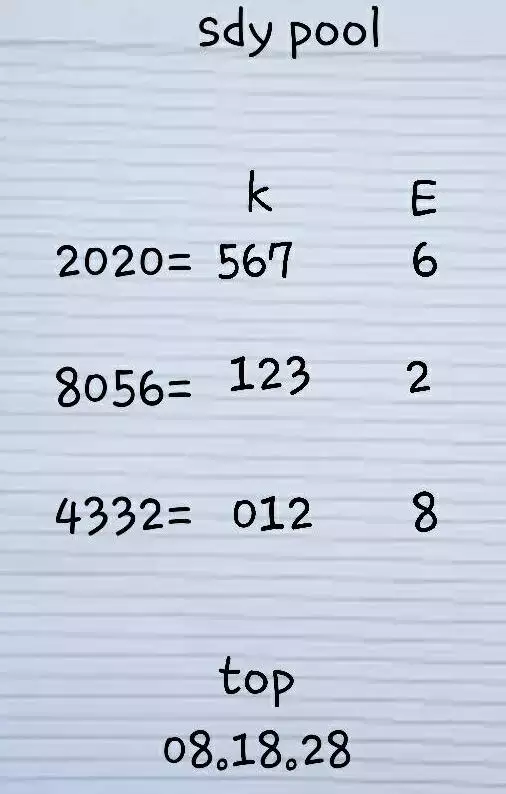 sdy pool
k E
2020= 567 6
8056= 123 2
4332= 012 8
top
08.18.28